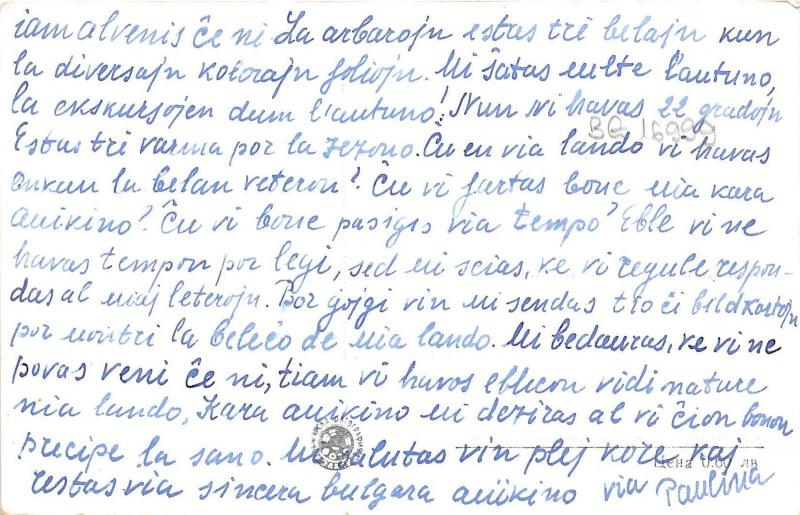 iam alvenis ĉe ni La arbarojn estas tre belajn kun
la diversajn kolorajn foliojn. Mi ŝatas multe l'aŭtuno,
la ekskursojen dum l'autuno! Nun ni havas 22 gradojn
BG 16999
Estas tre varma por la sezono. Ĉu en via lando vi havas
ankaŭ la belan veteron? Ĉu vi fartas bone mia kara
amikino? Ĉu vi bone pasigis via tempo? Eble vi ne
havas tempon por legi, sed mi scias, ke vi regule respon-
das al miaj leterojn. Por gojgi vin mi sendas tio ĉi bildkartojn
por montri la beleco de mia lando. Mi bedauras, ke vi ne
povas veni ĉe ni, tiam vi havos eblecon vidi nature
mia lando, Kara amikino mi deziras al vi ĉion bonon
precipe la sano. Mi salutas vin plej kore kaj
Цена 0.06 лв
restas via sincera bulgara amikino via Paulina